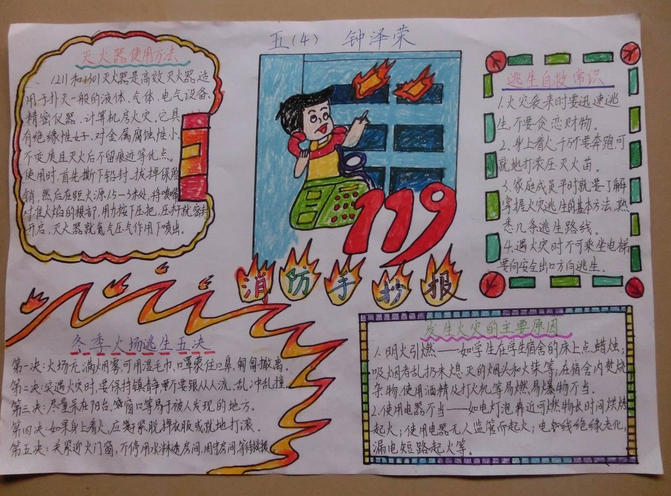 五(4) 钟泽荣
灭火器使用方法
1211和1301灭火器是高效灭火器,适
用于扑灭一般的液体、气体、电气设备、
精密仪器、计算机房火灾。它具
有绝缘性好,对金属腐蚀性小,
不变质且灭火后不留痕迹等优点。
使用时,首先撕下铅封,拔掉保险
销,然后在距火源1.5-3米处,将喷嘴
对准火焰的根部,用力按下压把,压杆就
开启,灭火器就氮气压气作用下喷出。
119
消防手抄报
逃生自救常识
1.火灾袭来时要迅速逃
生,不要贪恋财物。
2.身上着火,千万不要奔跑,可
就地打滚压灭火苗。
3.家庭成员平时就要了解
掌握火灾逃生的基本方法,熟
悉几条逃生路线。
4.遇火灾时不可乘坐电梯
要向安全出口方向逃生。
冬季火场逃生五决
第一决:火场充满烟雾,可用湿毛巾、口罩蒙住口鼻,匍匐撤离。
第二决:突遇火灾时,要保持镇静,千万不要跟从人流、乱冲乱撞。
第三决:尽量呆在阳台、窗口等易于被人发现的地方。
第四决:如果身上着火,应赶紧脱掉衣服或就地打滚。
第五决:关紧迎火门窗,不停用水淋透房间,固守房间等待救援。
发生火灾的主要原因
1.明火引燃——如学生在学生宿舍的床上点蜡烛;
吸烟者乱扔未熄灭的烟头和火柴等;在宿舍内焚烧
杂物;使用酒精及打火机等易燃易爆物不当。
2.使用电器不当——如电灯泡靠近可燃物长时间烘烤
起火;使用电器无人监管而起火;电线绝缘老化,
漏电短路起火等。